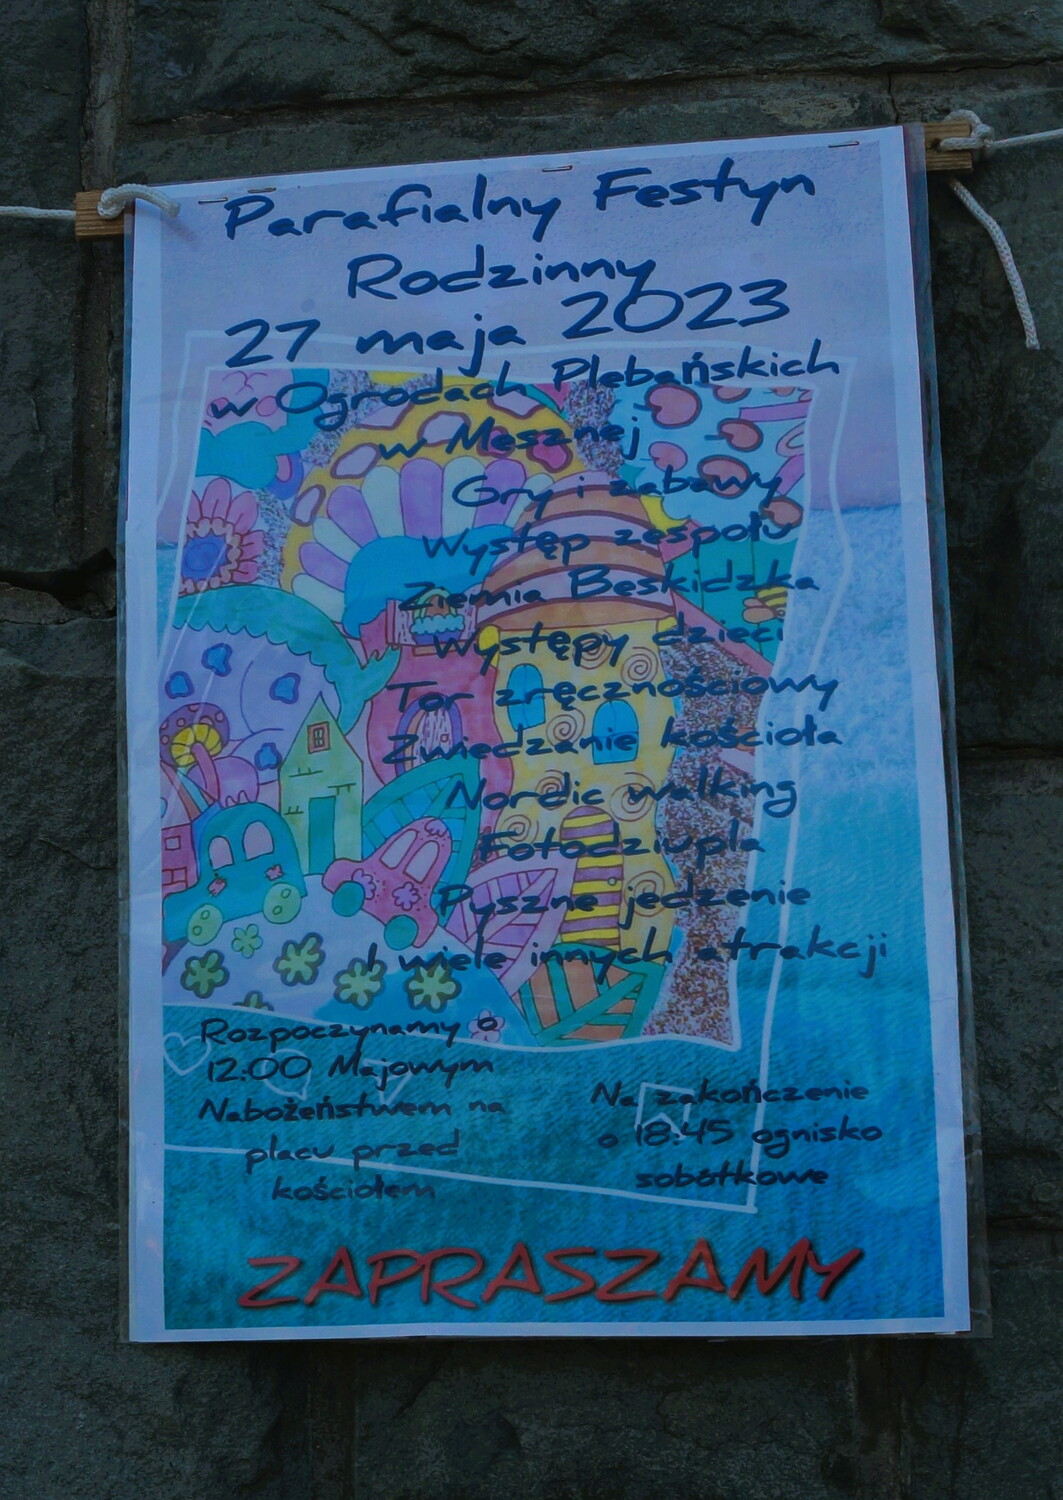 Parafialny Festyn
Rodzinny
27 maja 2023
w Ogrodach Plebańskich
w Mesznej
Gry i zabawy
Występ zespołu
Ziemia Beskidzka
Występy dzieci
Tor zręcznościowy
Zwiedzanie kościoła
Nordic walking
Fotodziupla
Pyszne jedzenie
I wiele innych atrakcji
Rozpoczynamy o
12.00 Majowym
Nabożeństwem na
placu przed
kościołem
Na zakończenie
o 18:45 ognisko
sobótkowe
ZAPRASZAMY